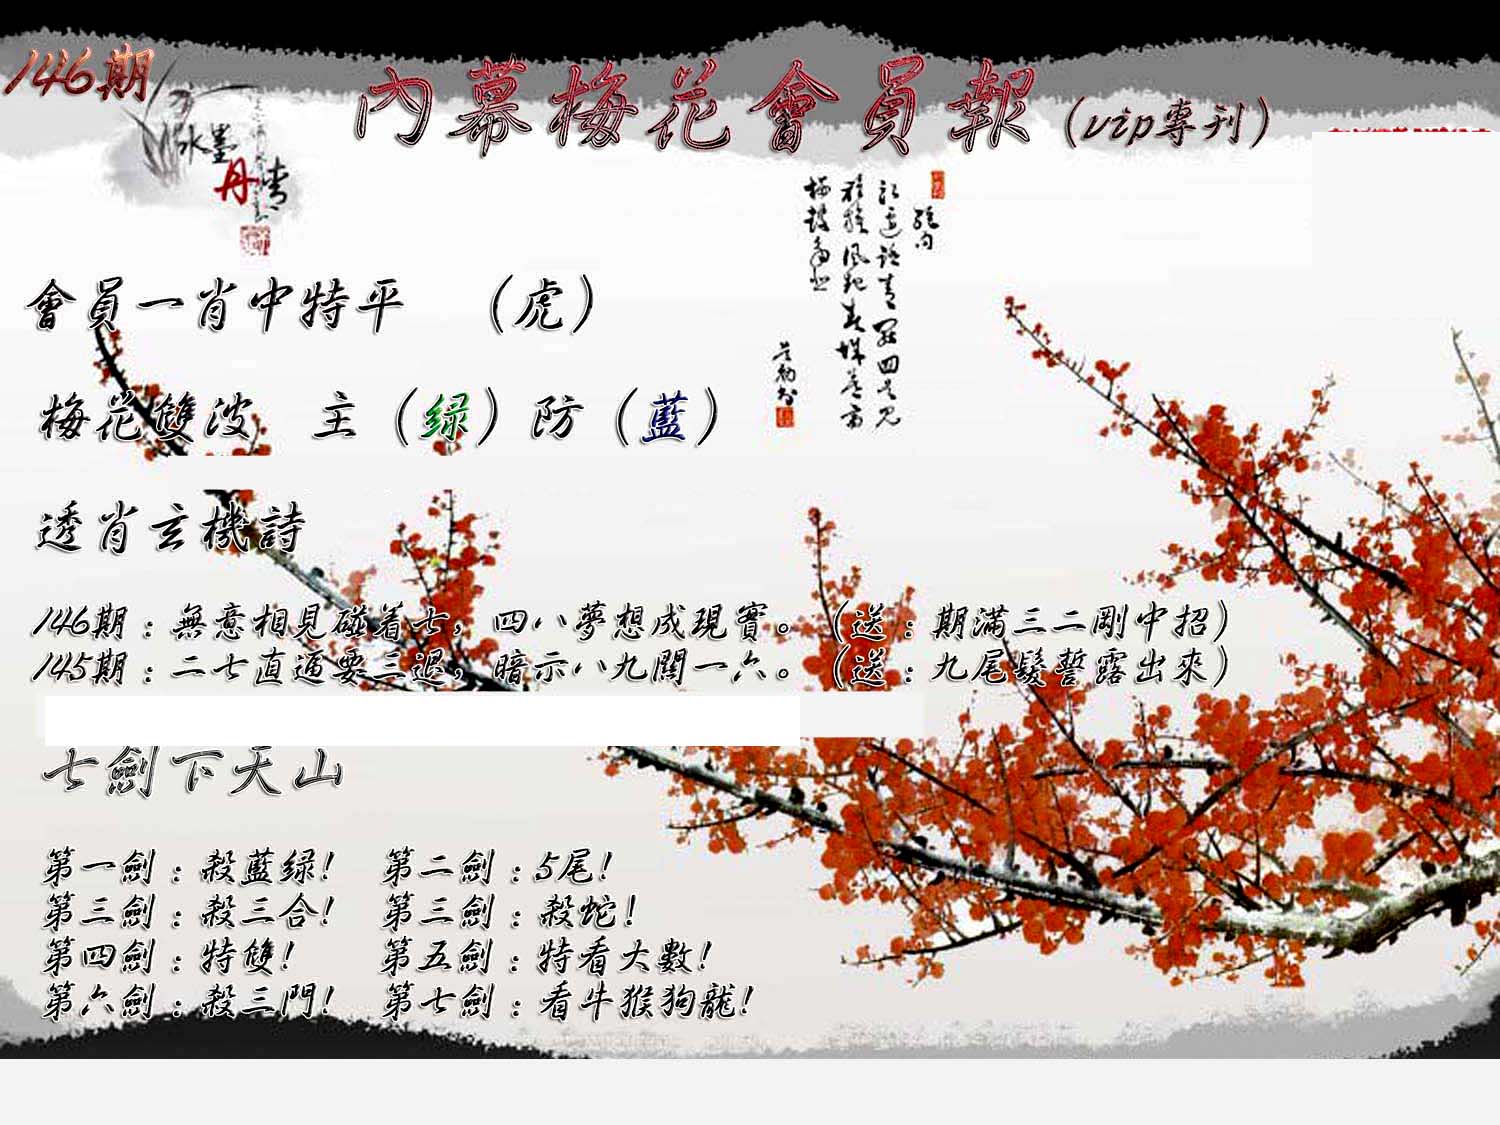 146期
內幕梅花會員報（vip專刊）
水墨
丹青
會員一肖中特平 （虎）
梅花雙波 主（绿）防（藍）
透肖玄機詩
146期：無意相見碰着七，四八夢想成現實。（送：期滿三二剛中招）
145期：二七直逼要三退，暗示八九關一六。（送：九尾髮誓露出來）
七劍下天山
第一劍：殺藍绿！ 第二劍：5尾！
第三劍：殺三合！ 第三劍：殺蛇！
第四劍：特雙！ 第五劍：特看大數！
第六劍：殺三門！ 第七劍：看牛猴狗龍！